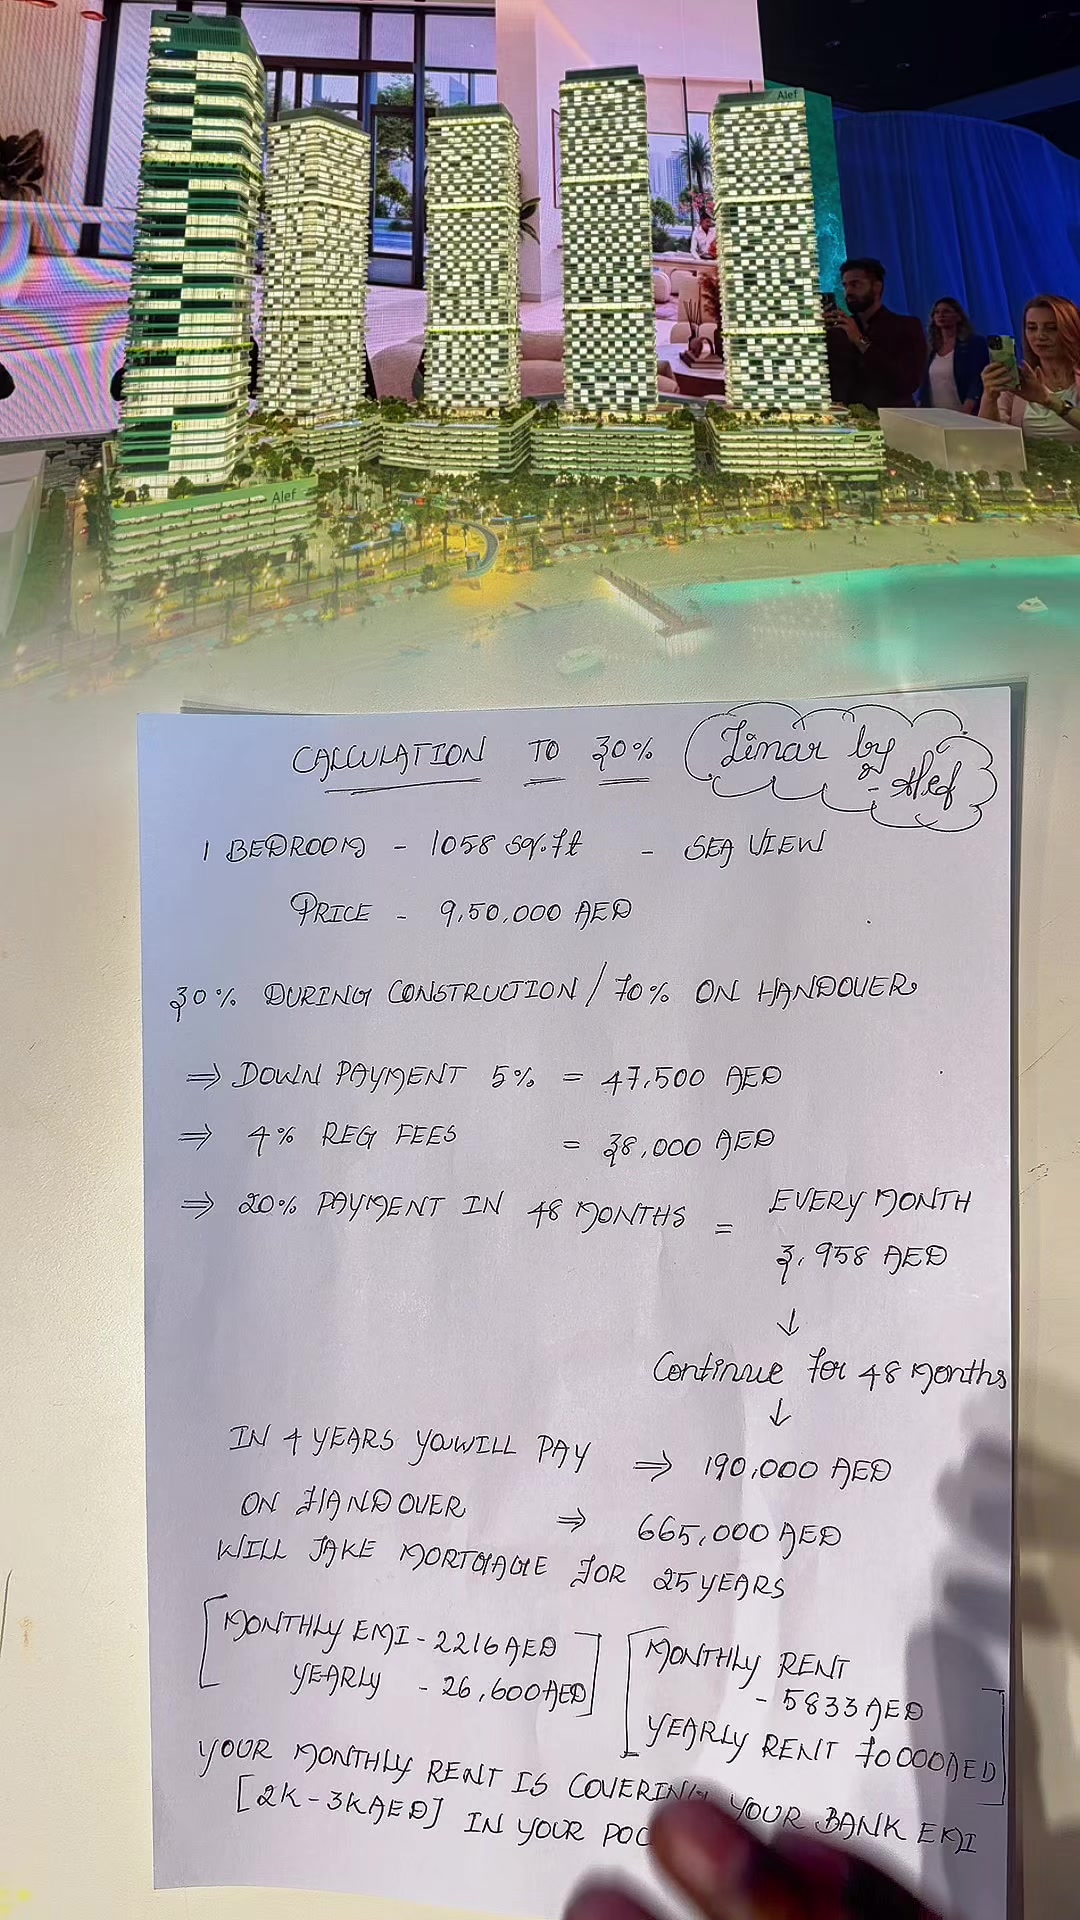 Alef
Alef
CALCULATION TO 30% (Jimar by
- Alef
1 BEDROOM - 1058 sq.ft - SEA VIEW
PRICE - 9,50,000 AED
30% DURING CONSTRUCTION / 70% ON HANDOVER
⇒ DOWN PAYMENT 5% = 47,500 AED
⇒ 4% REG FEES = 38,000 AED
⇒ 20% PAYMENT IN 48 MONTHS = EVERY MONTH
3,958 AED
↓
Continue for 48 Months
↓
IN 4 YEARS YOU WILL PAY ⇒ 190,000 AED
ON HANDOVER ⇒ 665,000 AED
WILL TAKE MORTGAGE FOR 25 YEARS
[MONTHLY EMI - 2216 AED
YEARLY - 26,600 AED]
[MONTHLY RENT
- 5833 AED
YEARLY RENT 70000 AED]
YOUR MONTHLY RENT IS COVERING YOUR BANK EMI
[2K - 3K AED] IN YOUR